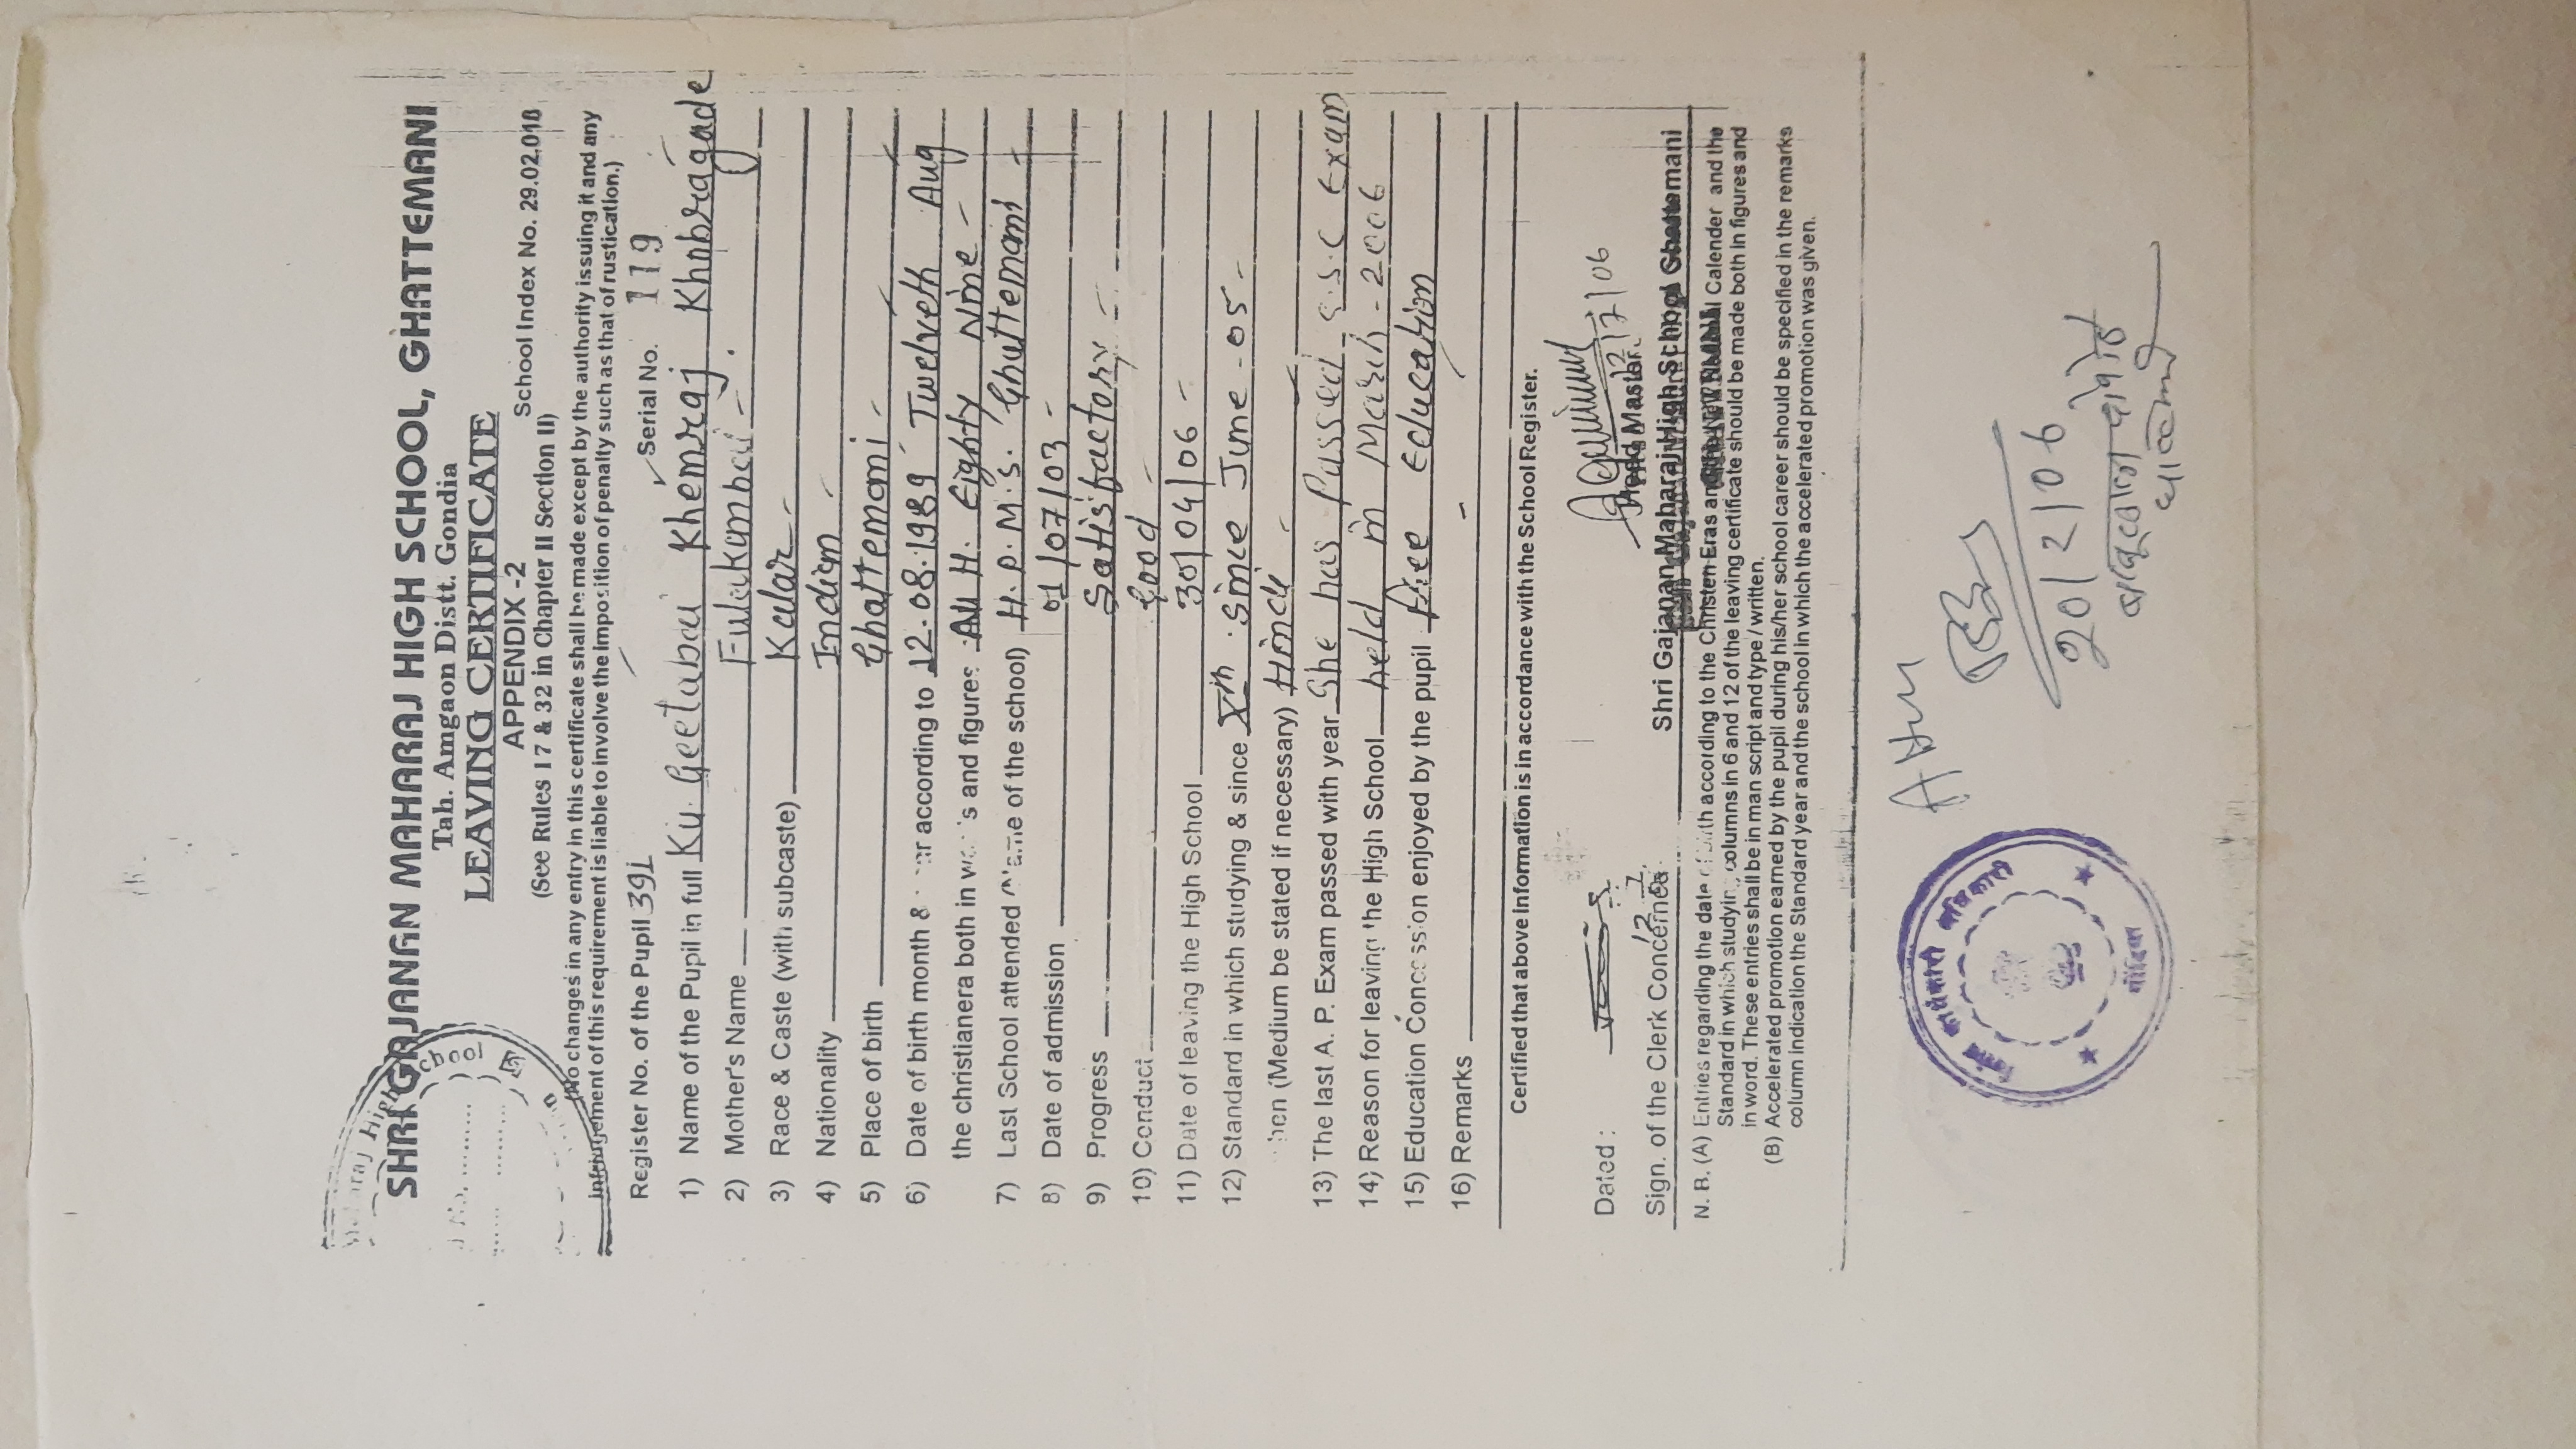 Maharaj High School
No. .........
SHRI GAJANAN MAHARAJ HIGH SCHOOL, GHATTEMANI
Tah. Amgaon Distt. Gondia
LEAVING CERTIFICATE
APPENDIX -2
School Index No. 29.02.018
(See Rules 17 & 32 in Chapter II Section II)
(No changes in any entry in this certificate shall be made except by the authority issuing it and any
infringement of this requirement is liable to involve the imposition of penalty such as that of rustication.)
Register No. of the Pupil 391 Serial No. 119
1) Name of the Pupil in full Ku. Geetabai Khemraj Khobragade
2) Mother's Name Fulakanbai -
3) Race & Caste (with subcaste) Kalar -
4) Nationality Indian -
5) Place of birth Ghattemani -
6) Date of birth month & according to 12.08.1989 Twelveth Aug
the christianera both in and figures H. Eighty Nine -
7) Last School attended (Name of the school) H. P. M. S. Ghattemani
8) Date of admission 01/07/03 -
9) Progress Satisfactory -
10) Conduct Good -
11) Date of leaving the High School 30/04/06 -
12) Standard in which studying & since Xth since June - 05 -
(Medium be stated if necessary) Hindi -
13) The last A. P. Exam passed with year She has Passed S.S.C Exam
14) Reason for leaving the High School held in March - 2006
15) Education Concession enjoyed by the pupil Free Education
16) Remarks -
Certified that above Information is in accordance with the School Register.
Dated :
12/7/06
Head Master.
Sign. of the Clerk Concerned
Shri Gajanan Maharaj High School Ghattemani
N. B. (A) Entries regarding the date of birth according to the Christen Eras and Calender and the
Standard in which studying columns in 6 and 12 of the leaving certificate should be made both in figures and
in word. These entries shall be in man script and type / written.
(B) Accelerated promotion earned by the pupil during his/her school career should be specified in the remarks
column indication the Standard year and the school in which the accelerated promotion was given.
विशेष कार्यकारी अधिकारी
गोंदिया
20/2/06